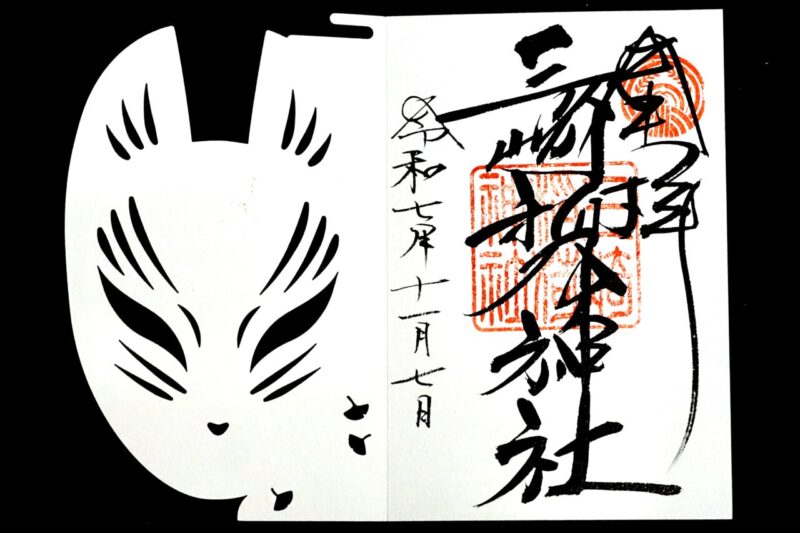 奉拝
三崎稲荷神社
令和七年十一月七日